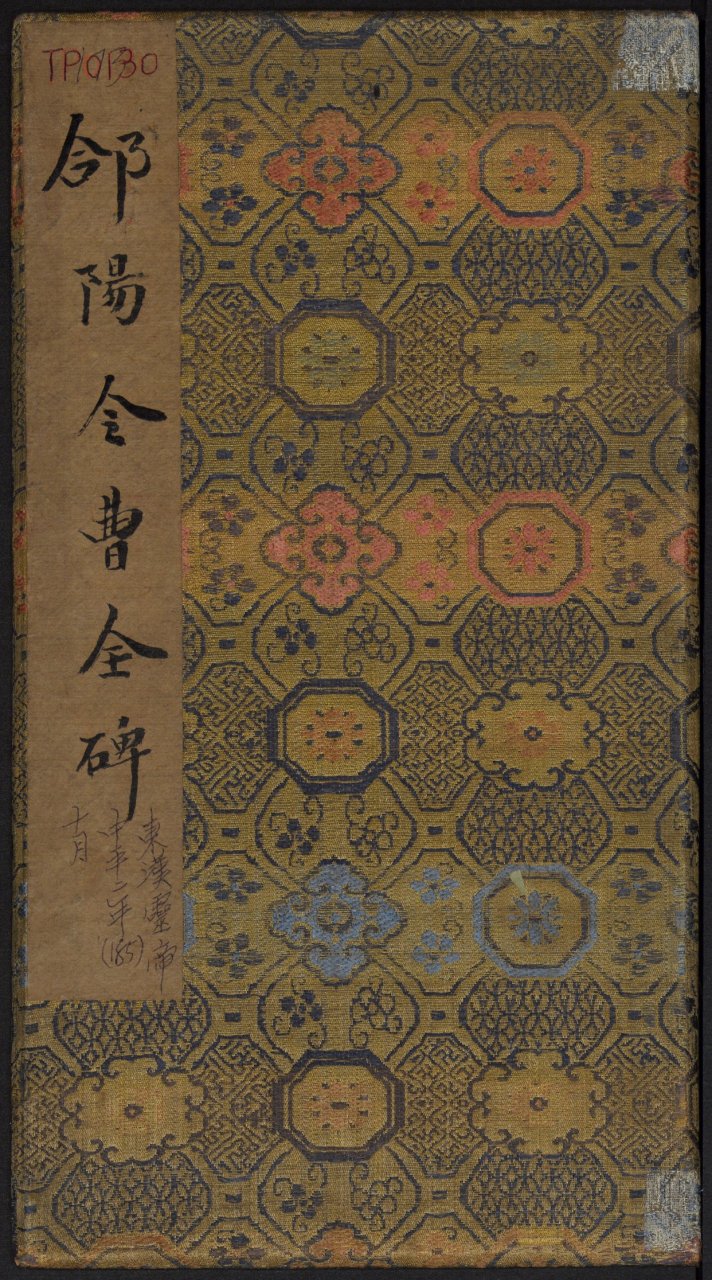 TP0130
郃陽令曹全碑
東漢靈帝
中平二年(185)
十月